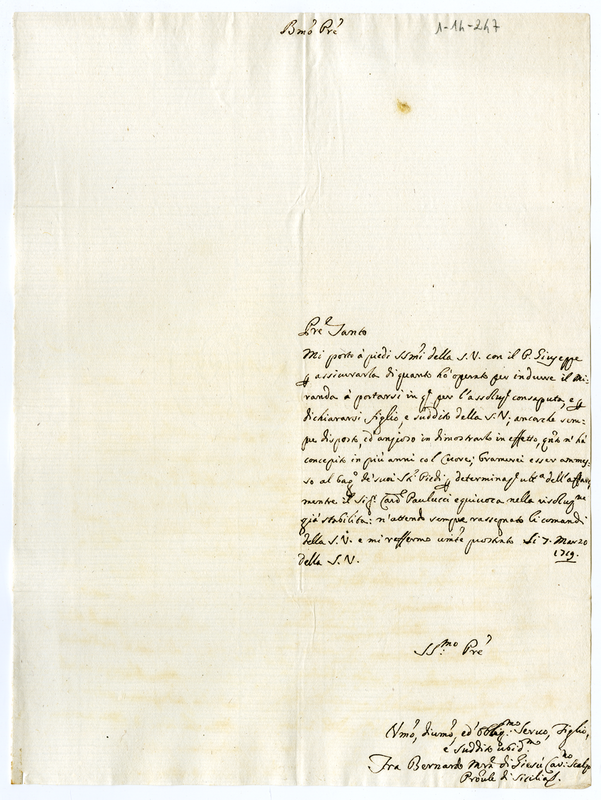 Bmo Pre
1-14-247
Pre Santo
Mi porto à piedi SSmi della S.V. con il P. Giuseppe
assicurarla di quanto hò operato per indurre il Mi:
randa à portarsi in per l'assoluz consaputa, e
dichiararsi figlio, e suddito della S.V; ancorche sem=
pre disposto, ed ansioso in dimostrarlo in effetto, n'hà
concepito in più anni col Cuore; bramerei esser ammes=
so al bag.o de' suoi Sti Piedi determinaz ult.a dell'affare,
mentre il Sig. Card. Paulucci equivoca nella risoluz.ne
già stabilita: n'attendo sempre rassegnato li comandi
della S.V. e mi raffermo umte prostrato Li 7. Marzo
della S.V. 1719.
SS.mo Pre
Vmo, diumo, ed obblig.mo Servo, Figlio,
e suddito ubid.mo
Fra Bernardo Mra di Giesù Car.no Scalzo
Proule di Sicilia